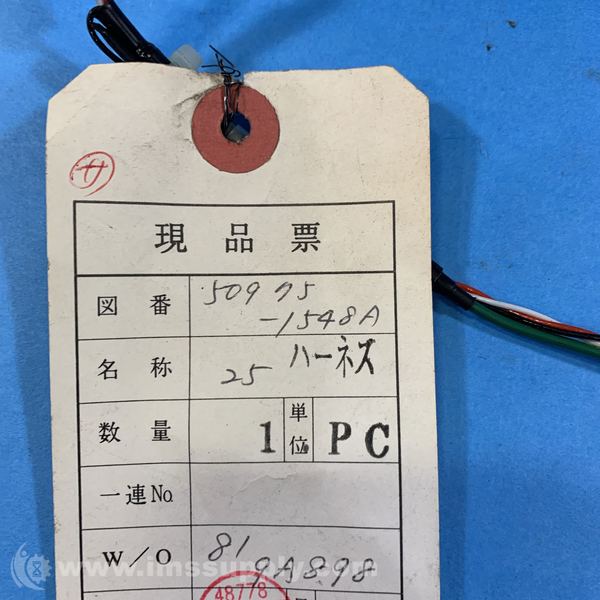 サ
現品票
図番 50975
-1548A
名称 25 ハーネス
数量 1 単位 PC
一連No.
W/O 81
9A898
48778
www.imssupply.com